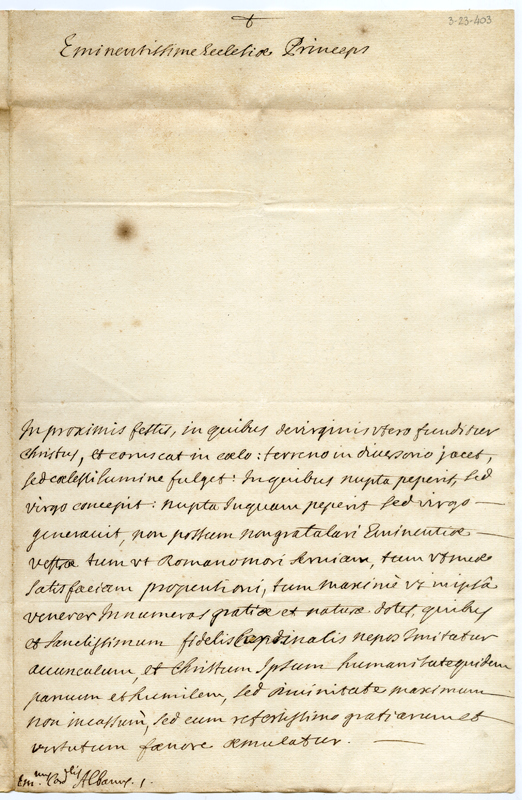 3-23-403
Eminentissime Ecclesiæ Princeps
In proximis festis, in quibus de virginis vtero funditur
Christus, et coruscat in cœlo: terreno in diversorio jacet,
sed cœlesti lumine fulget: In quibus nupta peperit, sed
virgo concepit: nupta Inquam peperit sed virgo
generauit, non possum non gratulari Eminentiæ
vestræ tum vt Romano mori seruiam, tum vt meæ
satisfaciam propentioni, tum maximè vt in ipsâ
venerer Innumeras gratiæ et naturæ dotes, quibus
et sanctissimum fidelis Cardinalis nepos Imitatur
auunculum, et Christum Ipsum humanitate quidem
paruum et humilem, sed diuinitate maximum
non incassum, sed cum refertissimo gratiarum et
virtutum fœnore æmulatur.
Em. Card. Albanus. 1.